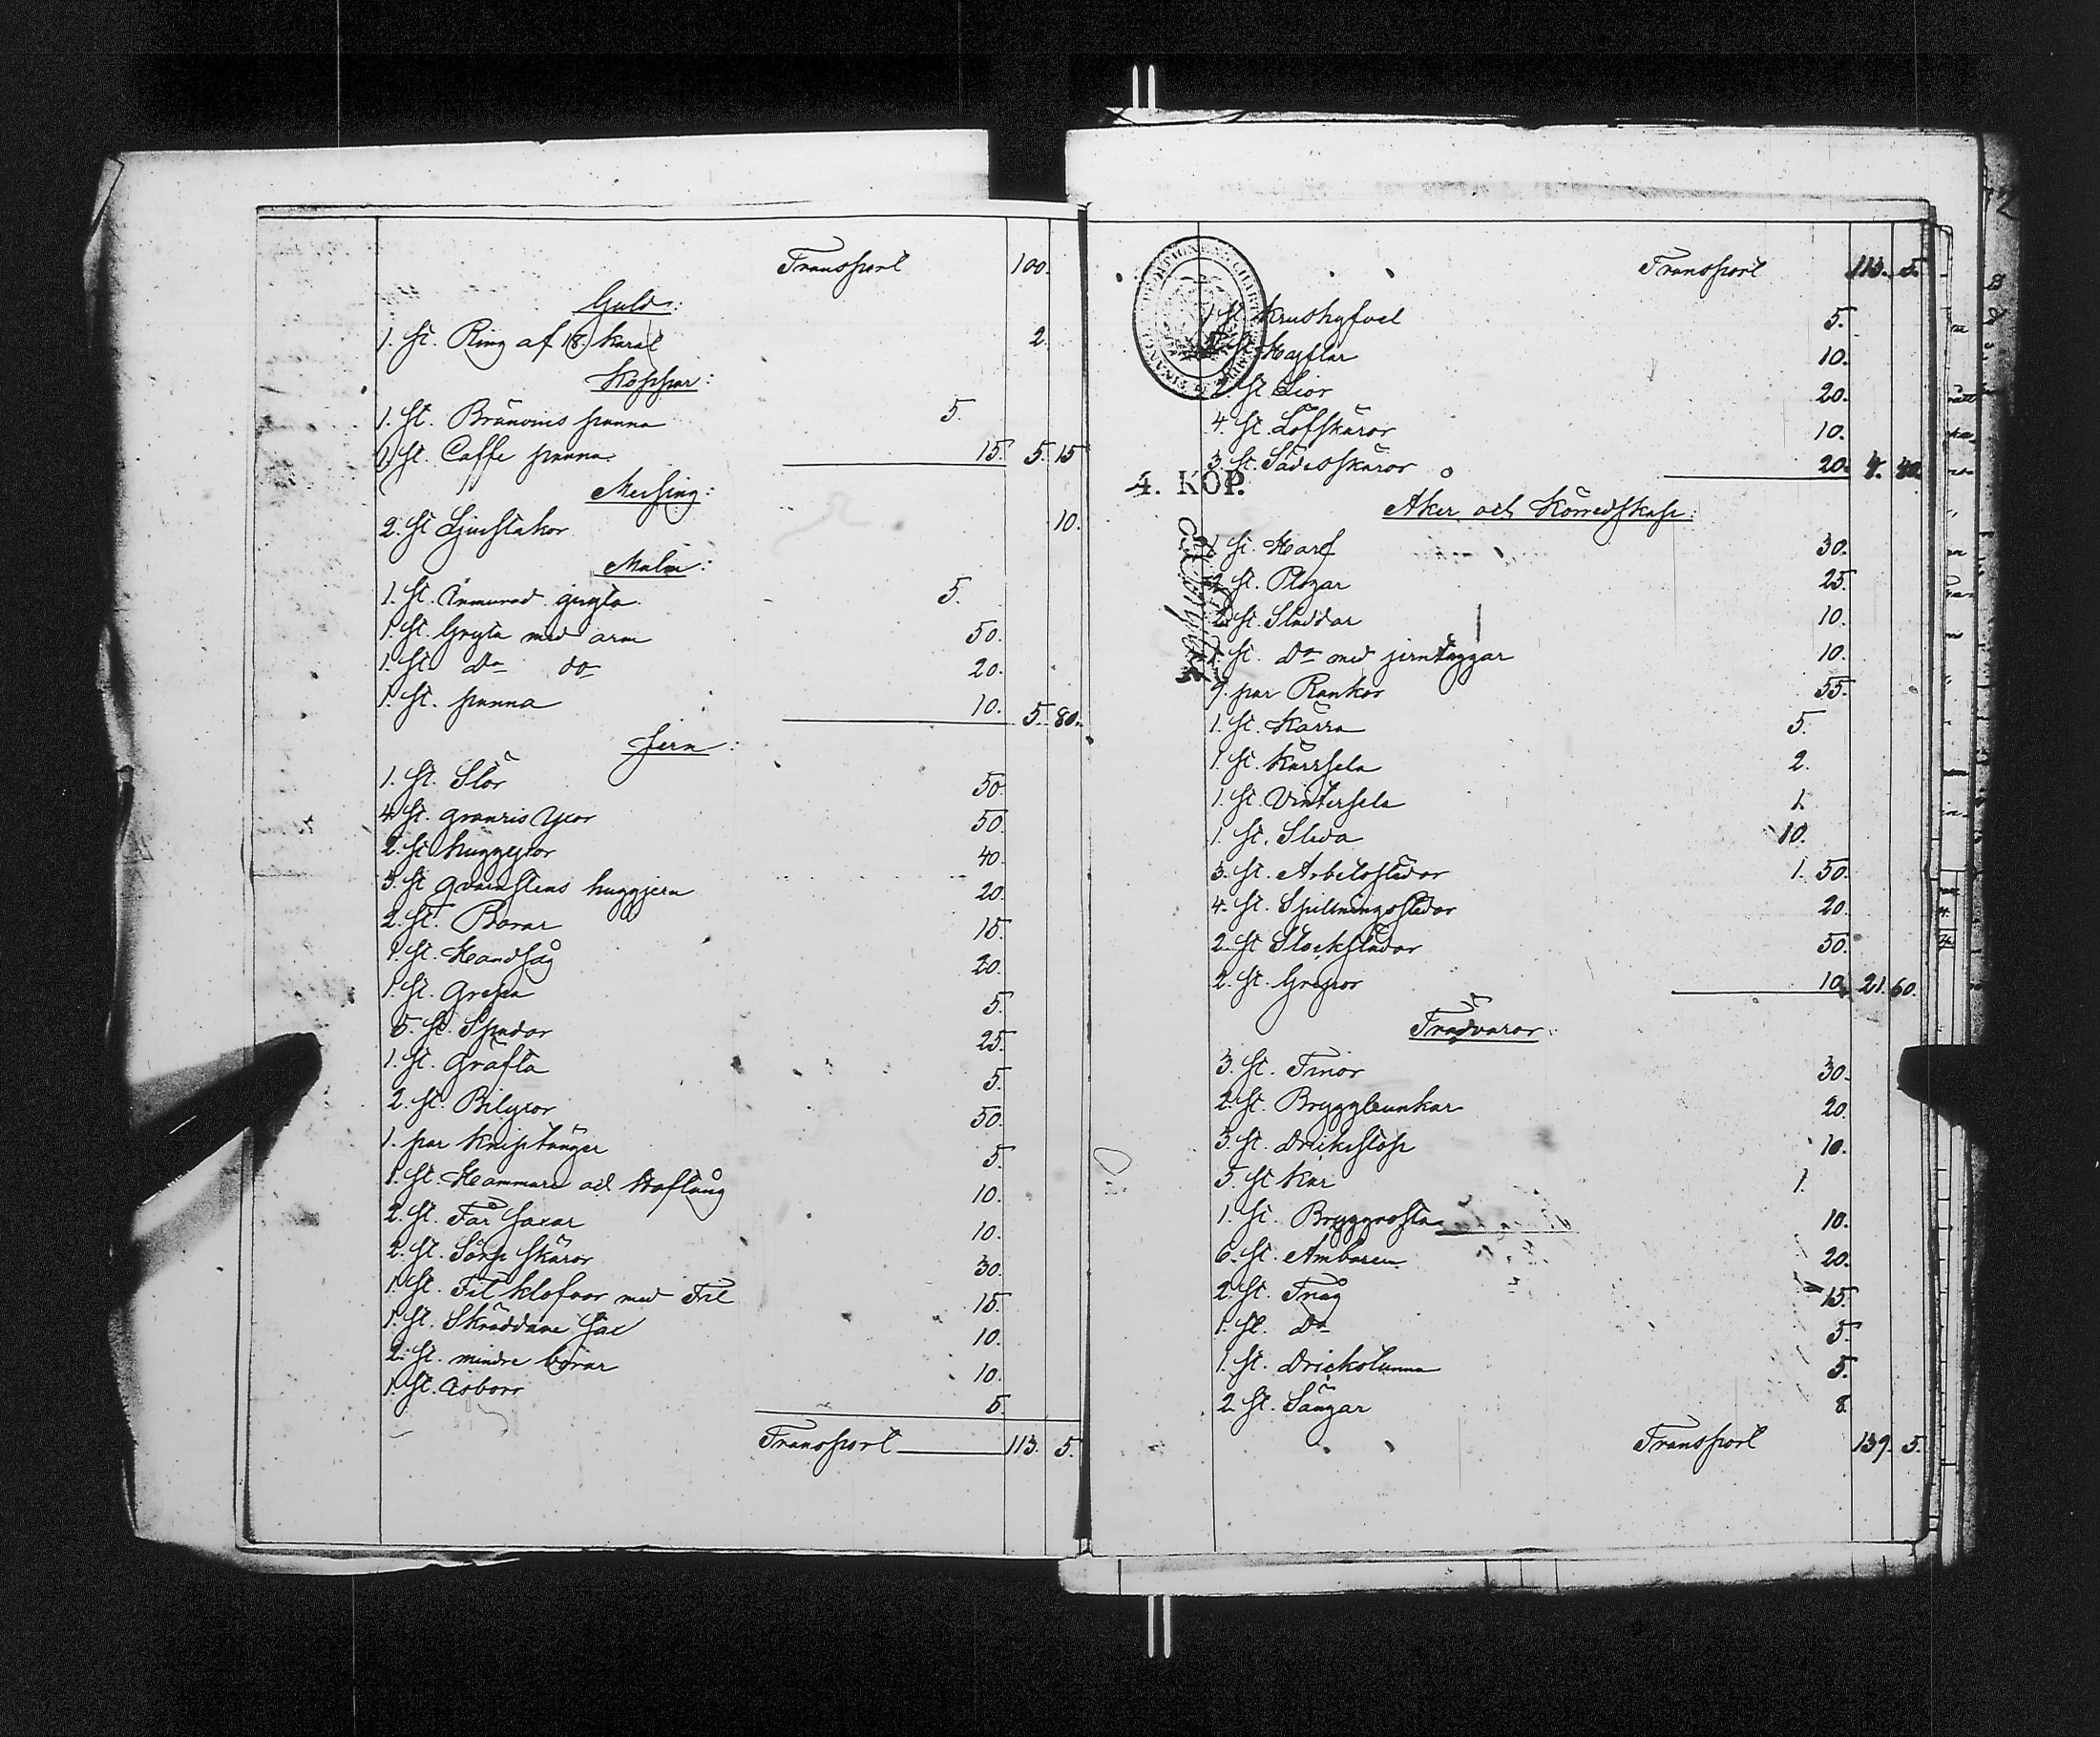 Transport 100.
Guld:
1. St. Ring af 18. karat 2.
Koppar:
1. St. Bränvins panna 5.
1. St. Caffe panna 15. 5. 15
Messing:
2. St Ljusstakor 10.
Malm:
1. St. Inmurad gryta 5.
1. St. Gryta med arm 50.
1. St do do 20.
1. St. panna 10. 5. 80.
Jern:
1. St. Stör 50.
4. St. granris yxor 50.
2. St huggyxor 40.
3. St qvarnstens huggjern 20.
2. St. Borrar 15.
1. St. Handsåg 20.
1. St. Grepa 5.
5. St. Spadar 25.
1. St. Gräfta 5.
2. St. Bilyxor 50.
1. par Kniptänger 5.
1. St. Hammare och Hoftång 10.
2. St. Får saxar 10.
2. St. Sörp skäror 30.
1. St. Fil klofvar med Fil 15.
1. St. Skräddare Sax 10.
2. St. mindre borrar 10.
1. St. Isborr 5.
Transport 113. 5.
Transport 113. 5.
St Krushyfvel 5.
St. Hyflar 10.
2. St Lior 20.
4. St. Löfskäror 10.
3. St. Sädesskäror 20. 4. 40
4. KÖP.
Åker och Körredskap:
1 St. Harf 30.
2 St. Plogar 25.
2. St. Sladdar 10.
1. St. do med jerntaggar 10.
9. par Rankor 55.
1. St. Kärra 5.
1. St. Kärrsela 2.
1. St. Vintersela 1.
1. St. Sleda 10.
3. St. Arbetsslädor 1. 50.
4. St. Spillningsslädor 20.
2. St Stockslädar 50.
2. St. Grepor 10. 21. 60.
Trädvaror:
3. St. Tinor 30.
2. St. Bryggbunkar 20.
3. St. Dricksstop 10.
5. St Kar 1.
1. St. Bryggrosta 10.
6. St. Ambaren 20.
2. St. Tråg 15.
1. St. do 5.
1. St. Drickstunna 5.
2. St. Sängar 8.
Transport 139. 5.